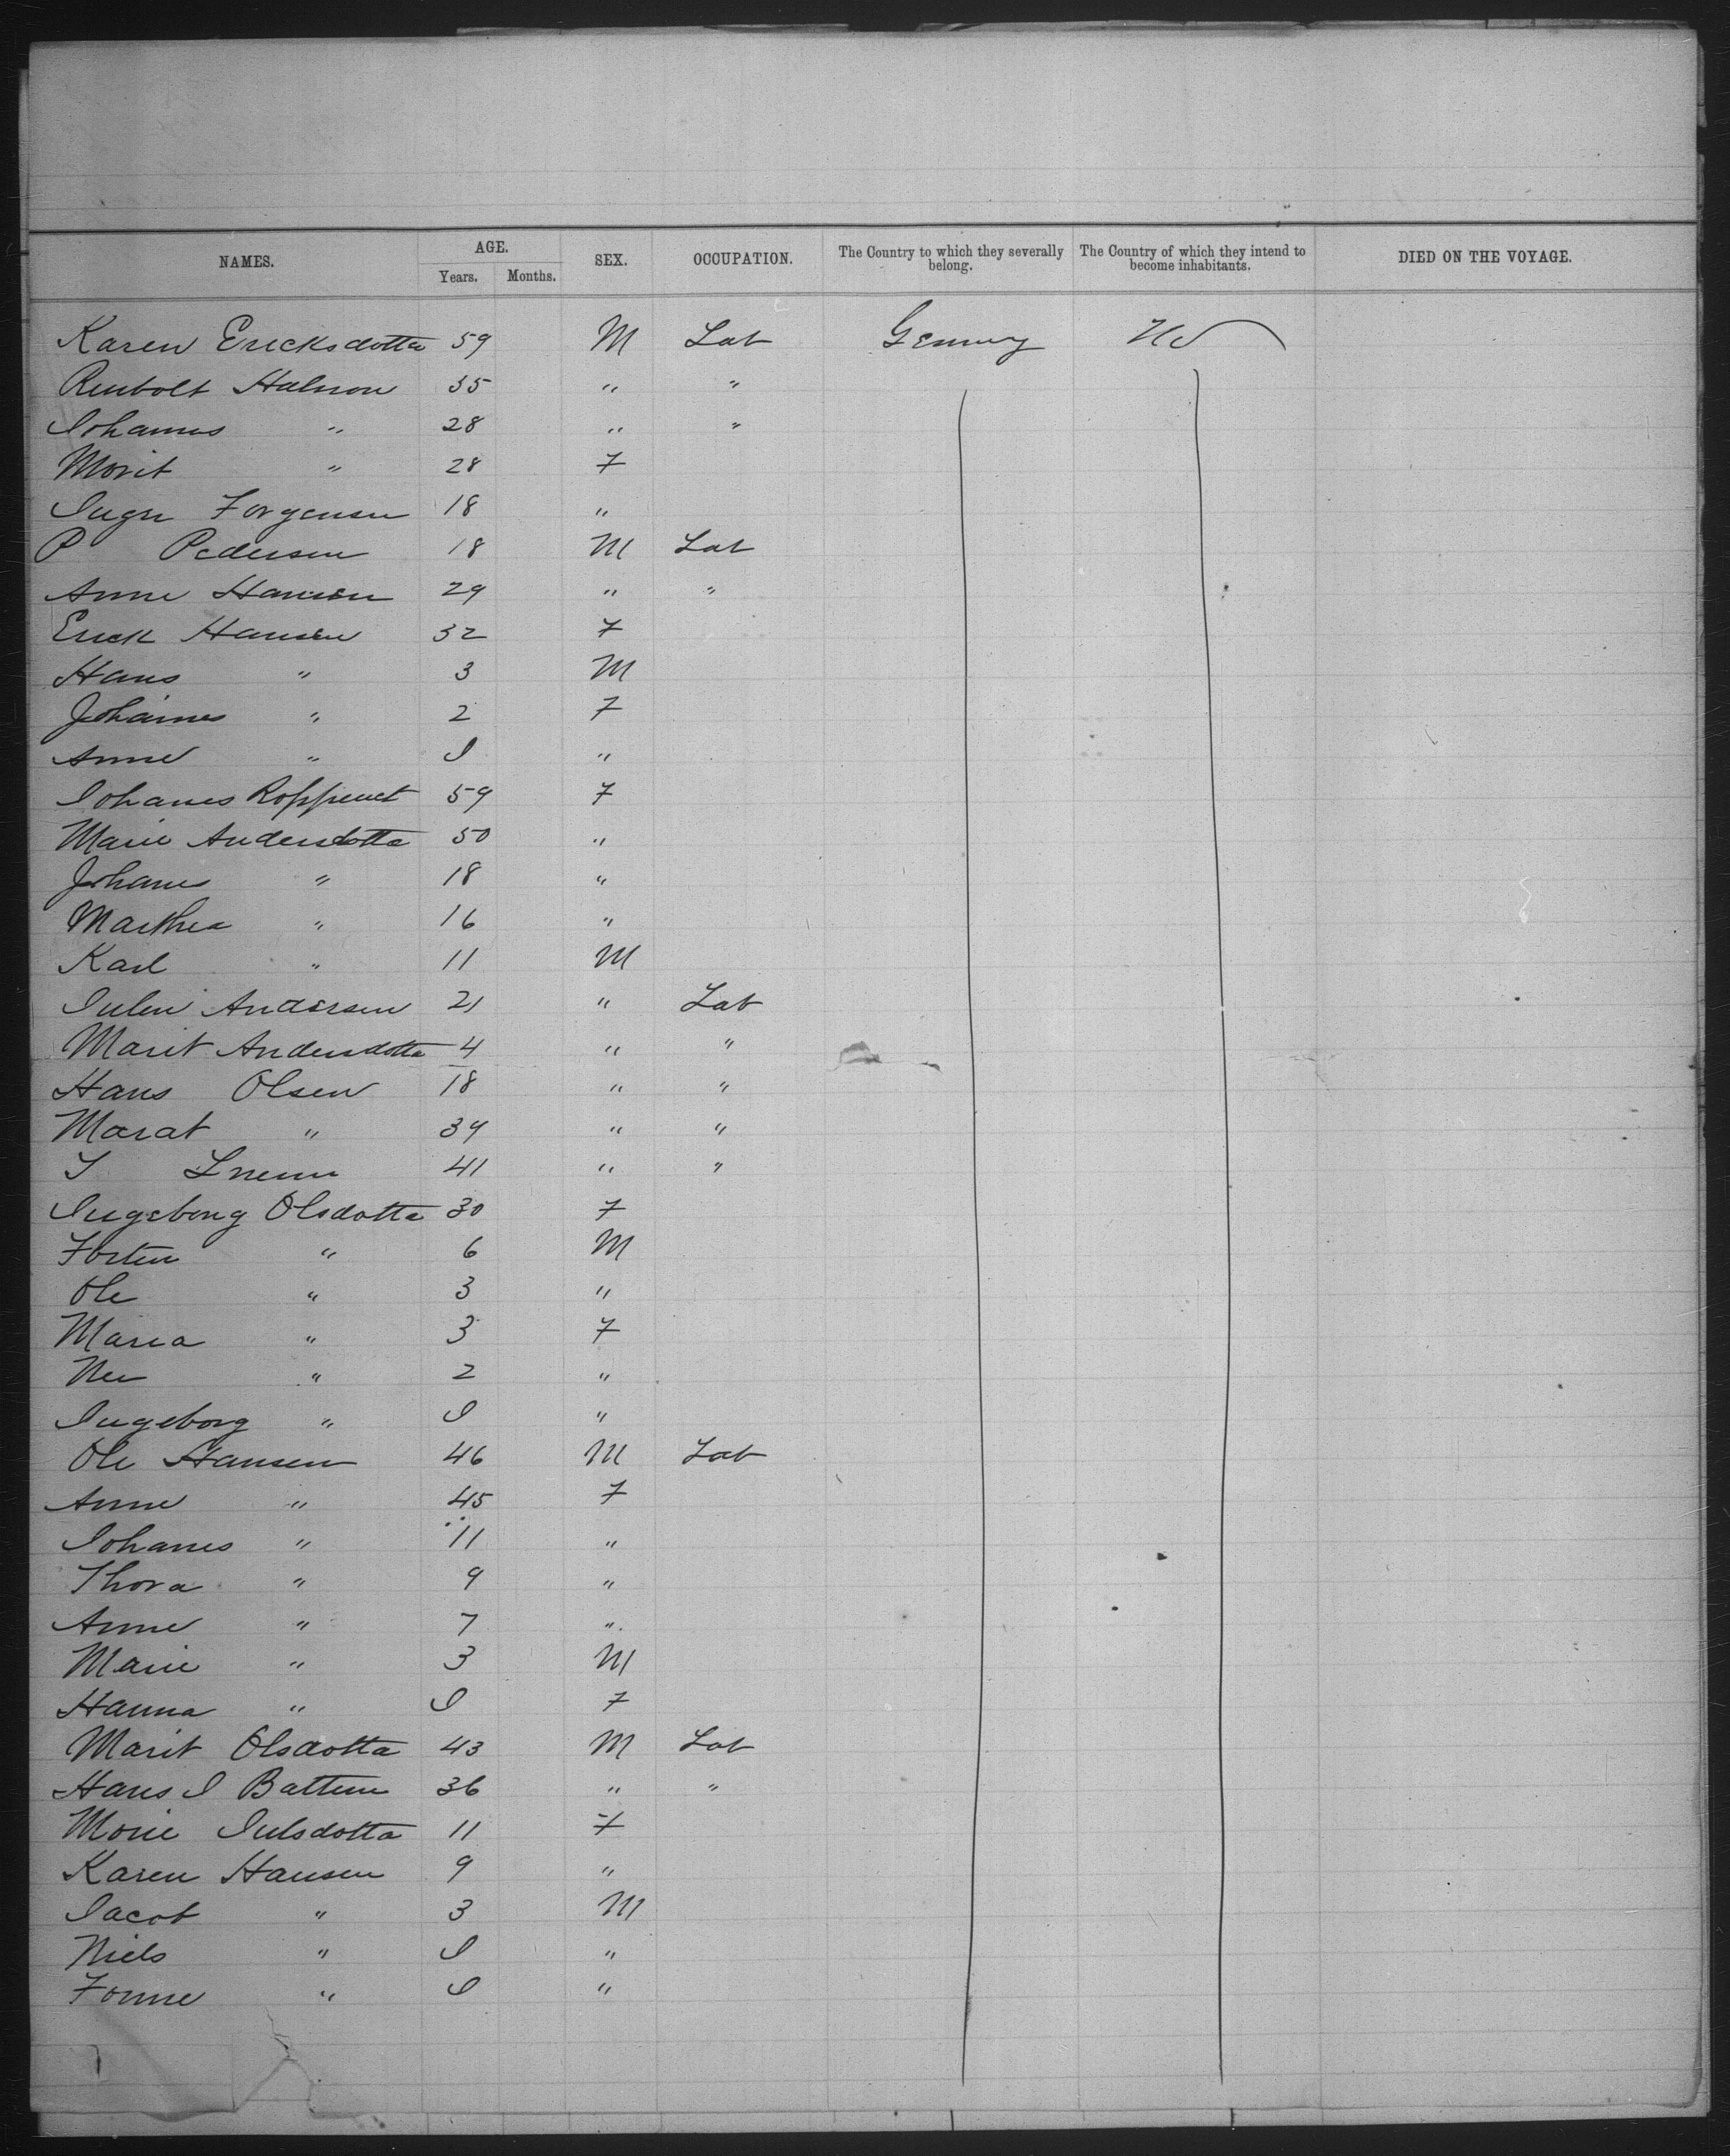 NAMES. AGE. SEX. OCCUPATION. The Country to which they severally belong. The Country of which they intend to become inhabitants. DIED ON THE VOYAGE.
Years. Months.
Karen Ericksdotta 59 M Lab Germny US
Halnon 35 " "
Iohannes " 28 " "
Morit " 28 F
Ingri Forgensen 18 "
P Pedersen 18 M Lab
Anne Hansen 29 " "
Erick Hansen 32 F
Hans " 3 M
Johannes " 2 F
Anne " I "
Iohanes 59 F
Marie Andersdotta 50 "
Johanes " 18 "
Marthea " 16 "
Karl " 11 M
Andersen 21 " Lab
Marit Andersdotta 4 " "
Hans Olsen 18 " "
Marat " 39 " "
41 " "
Ingeborg Olsdotta 30 F
" 6 M
Ole " 3 "
Maria " 3 F
" 2 "
Ingeborg " I "
Ole Hansen 46 M Lab
Anne " 45 F
Iohanes " 11 "
Thora " 9 "
Anne " 7 "
Marie " 3 M
Hanna " I F
Marit Olsdotta 43 M Lab
Hans I 36 " "
Morie Iulsdotta 11 F
Karen Hansen 9 "
Iacob " 3 M
Niels " I "
" I "